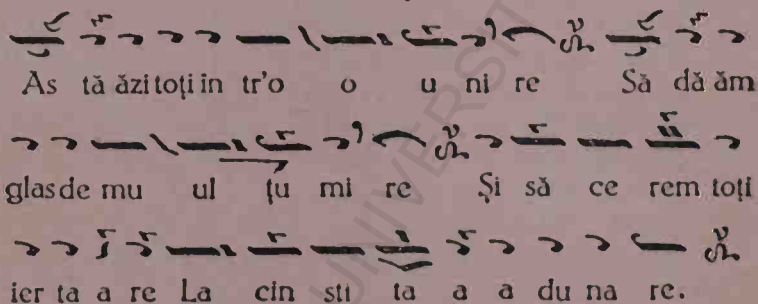 As tă ăzi toți in tr'o o u ni re Să dă ăm
glas de mu ul țu mi re Și să ce rem toți
ier ta a re La cin sti ta a a du na re.